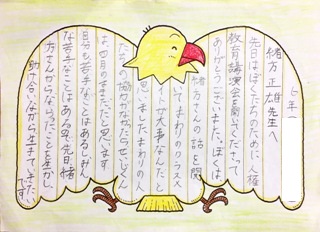 六年一
緒方正雄先生へ
先日はぼくたちのために人権
教育講演会を開いてくださって
ありがとうございました。ぼくは、
緒方さんの話を聞
いてまわりのクラスメ
イトが大事なんだと
思いましたまわりの人
たちの協力がなかったらせいじんく
は、四月のままだったと思います
自分も苦手なことはあるしみん
な苦手なことはある。先日緒
方さんからならったことを生かし、
助け合いながら生きていきたい
です。